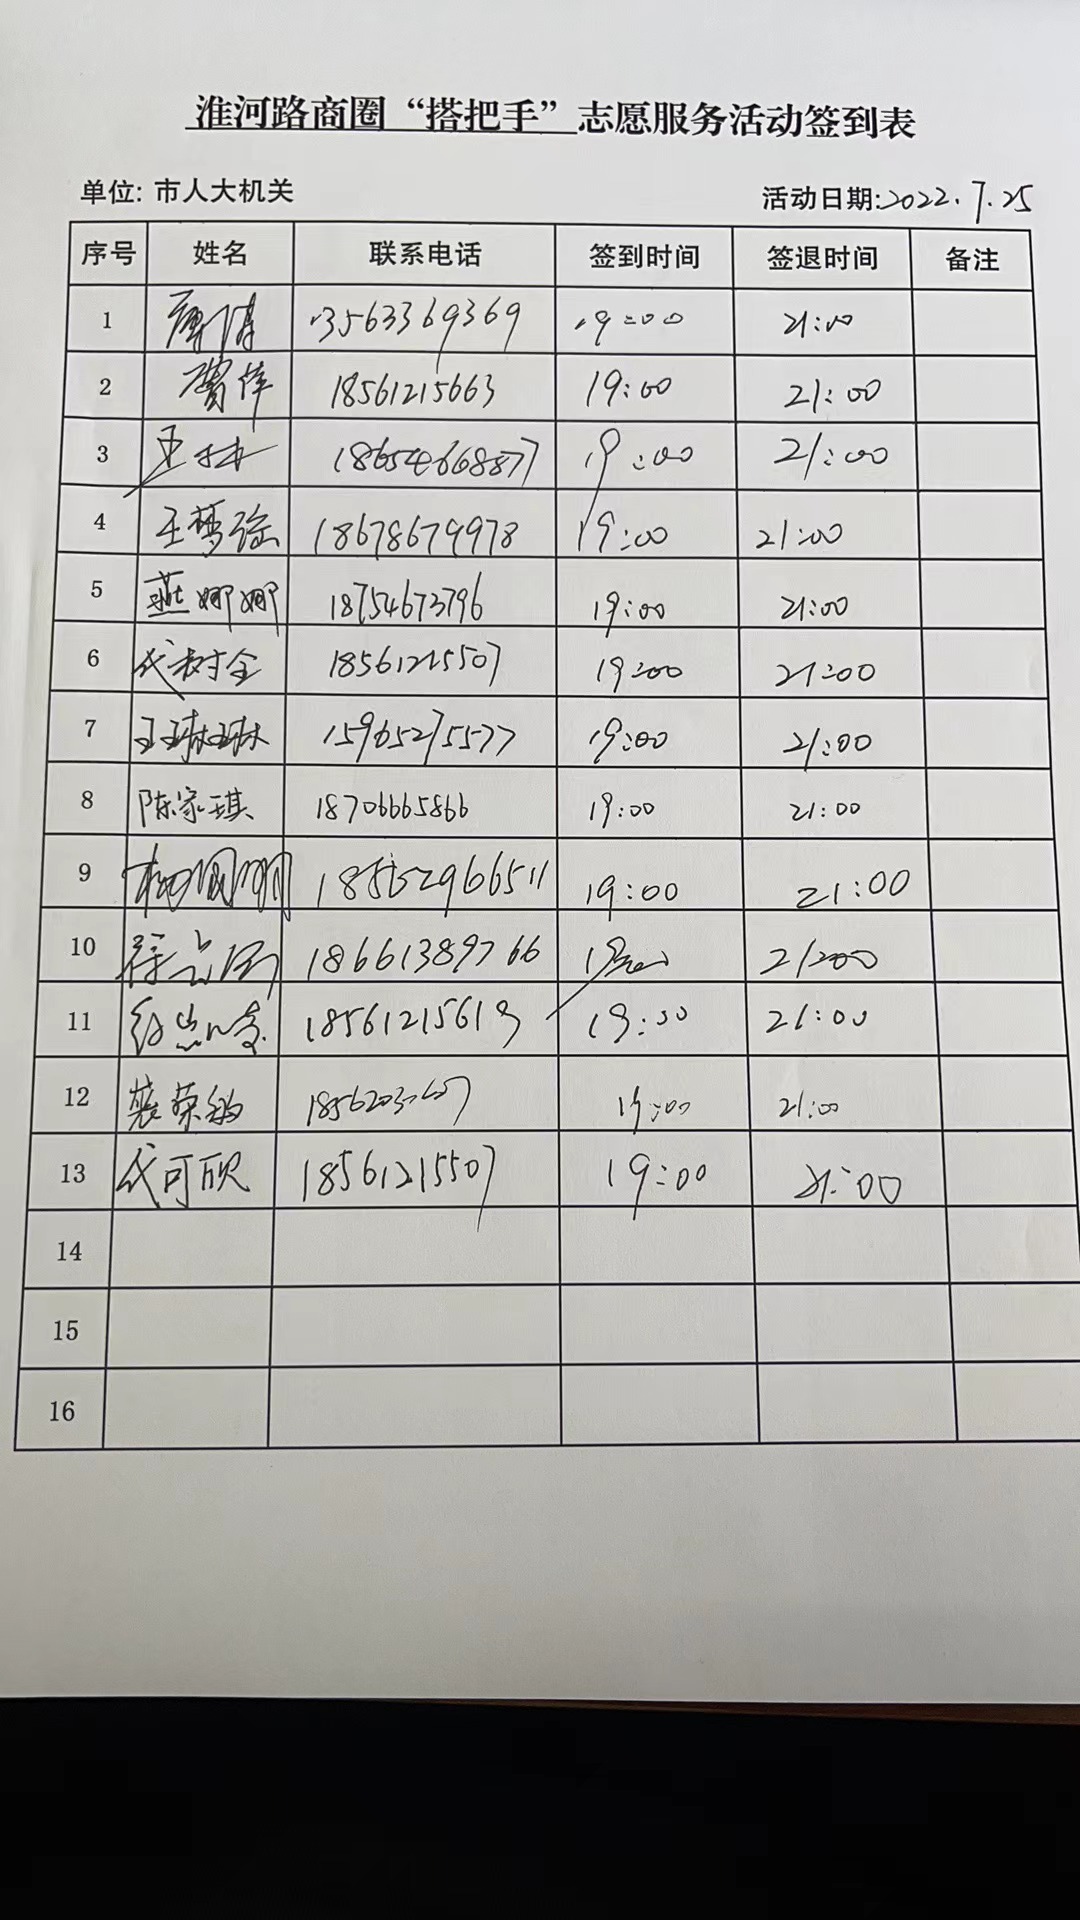 淮河路商圈“搭把手”志愿服务活动签到表
单位: 市人大机关 活动日期:2022.7.25
序号 姓名 联系电话 签到时间 签退时间 备注
1 13563369369 19:00 21:00
2 贾伟 18561215663 19:00 21:00
3 18654668877 19:00 21:00
4 王梦瑶 18678679978 19:00 21:00
5 燕娜娜 18754673796 19:00 21:00
6 代树全 18561215507 19:00 21:00
7 王琳琳 15965275577 19:00 21:00
8 陈家琪 18706665866 19:00 21:00
9 19:00 21:00
10 18661389766 19:00 21:00
11 18561215619 19:00 21:00
12 裴荣敏 19:00 21:00
13 代可欣 18561215507 19:00 21:00
14
15
16